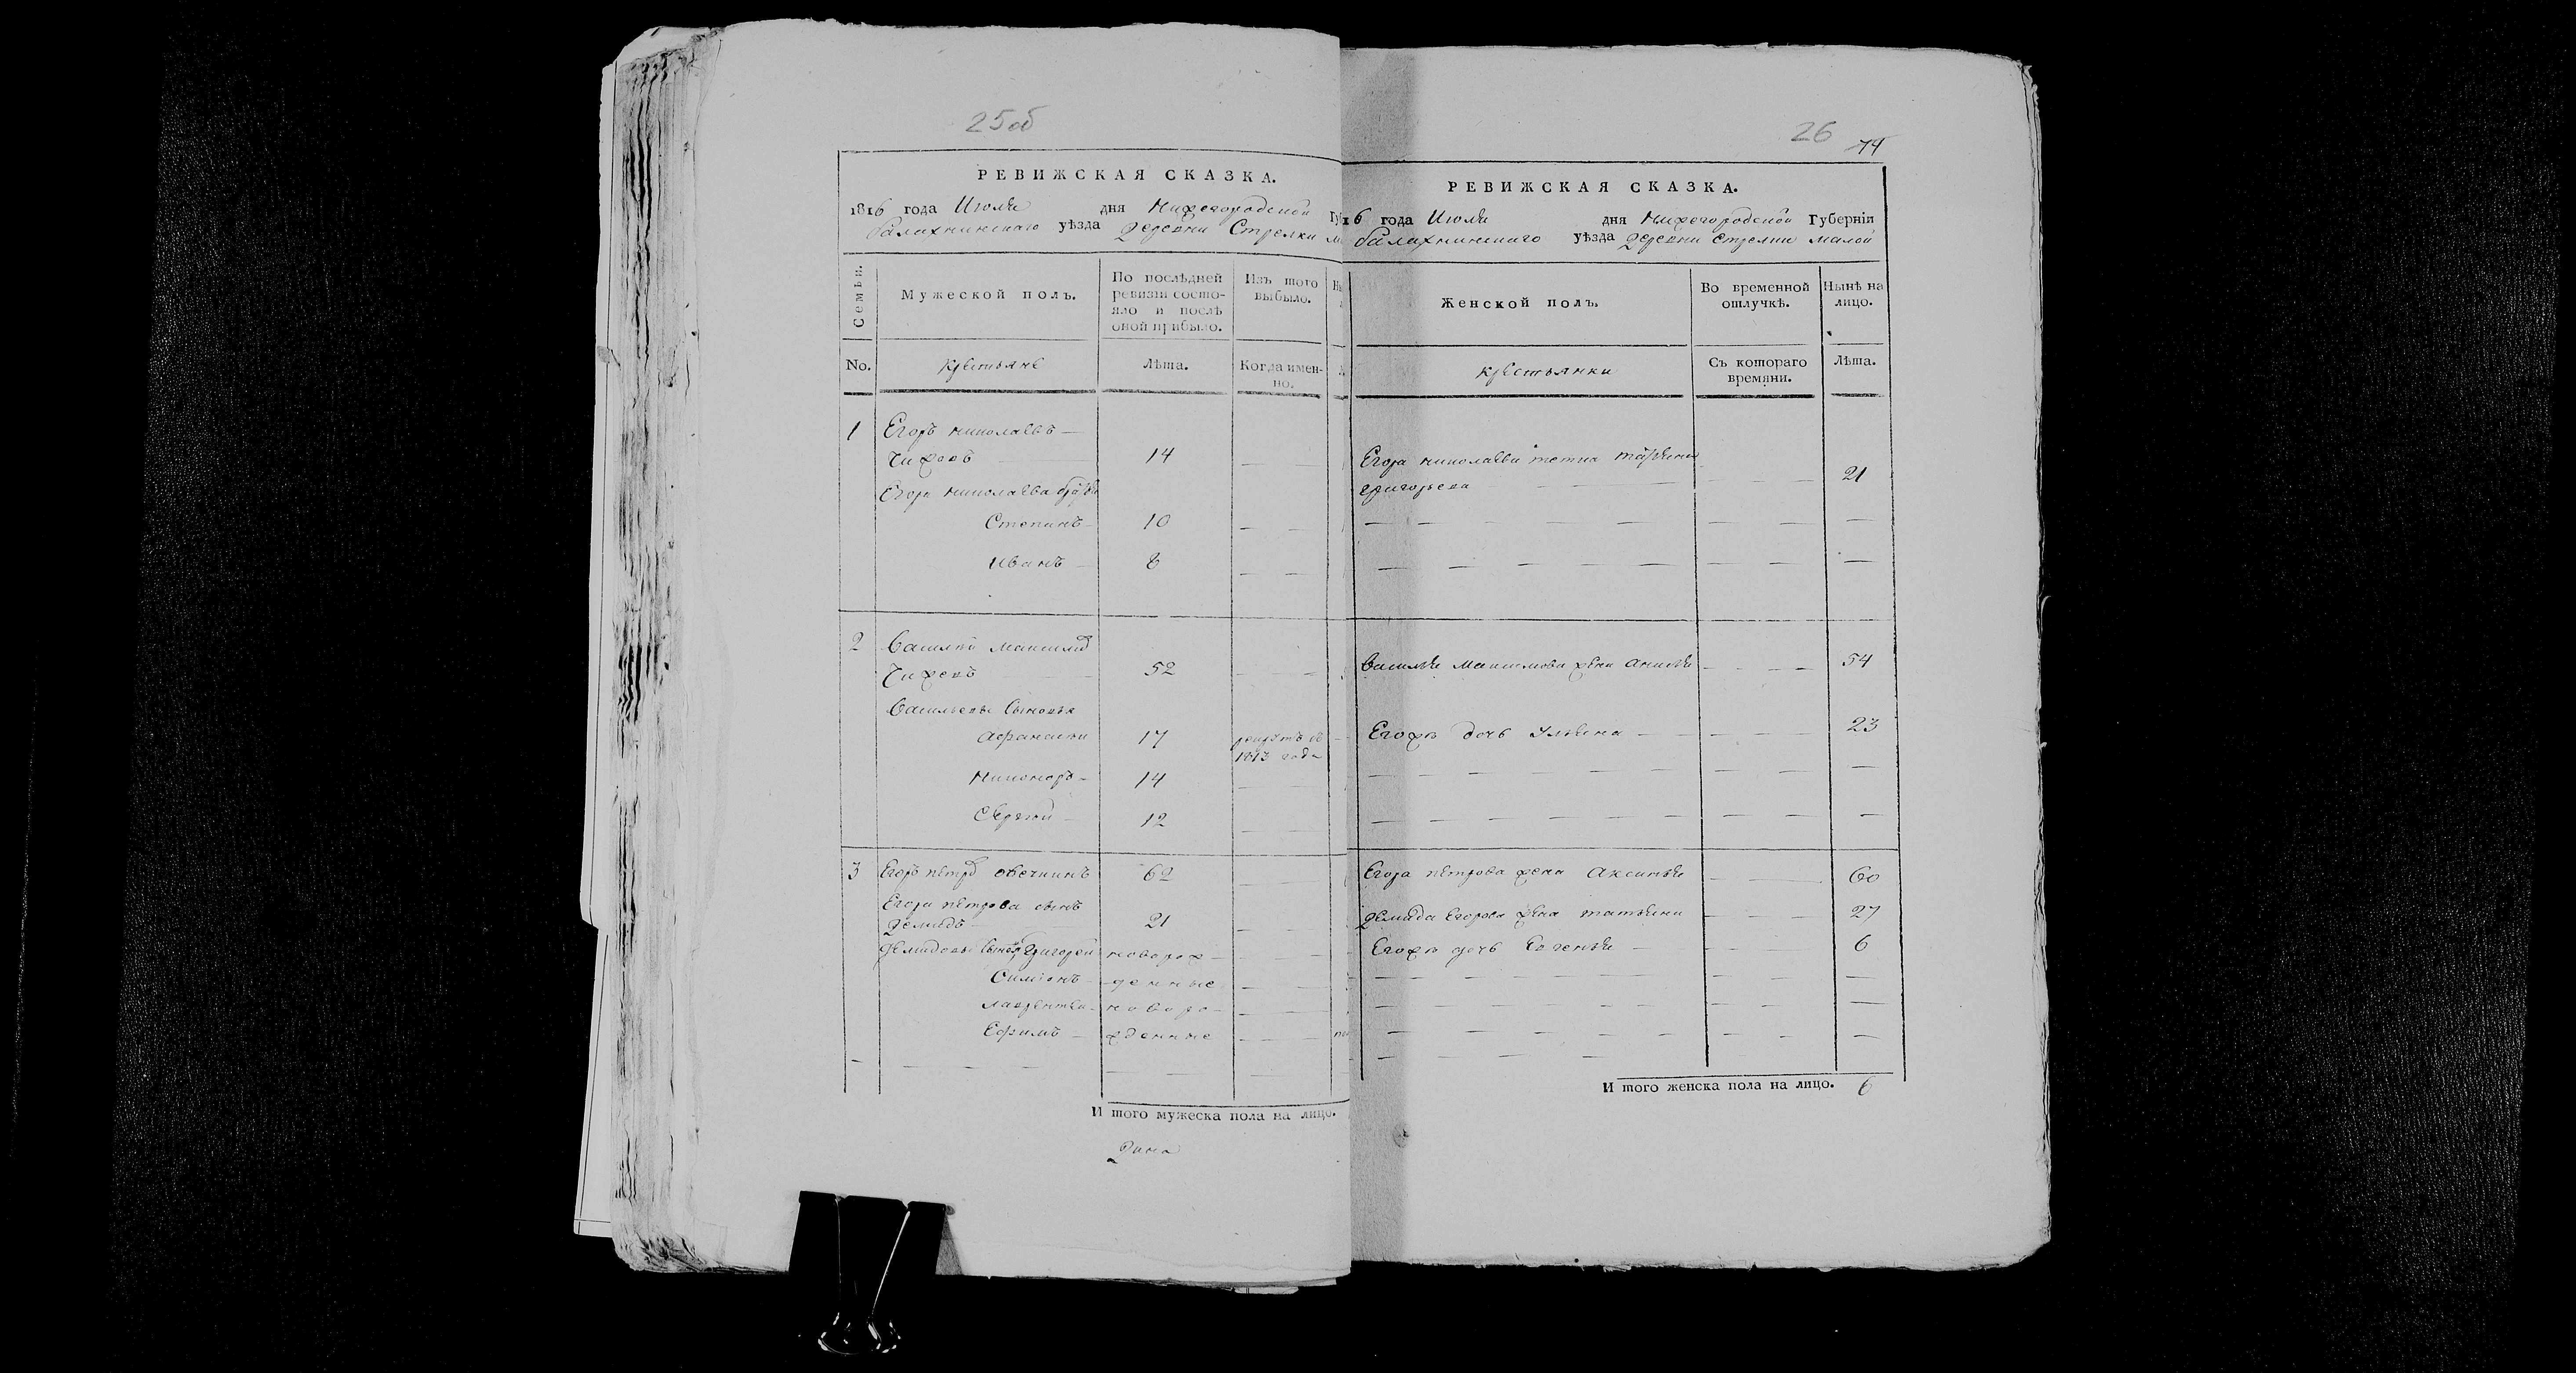 25об
РЕВИЖСКАЯ СКАЗКА.
1816 года Июля дня Нижегородской Гу
балахнинскаго уѣзда деревни Стрелки
Семьи.
Мужеской полъ.
По послѣдней
ревизіи состо-
яло и послѣ
оной прибыло.
Изъ того
выбыло.
No.
крестьяне
Лѣта.
Когда имен-
но.
1
Егоръ николаевъ
14
Егора николаева братья
Степанъ 10
Иванъ 8
2 Василей максимов
52
Васильевы сыновья
Афанасей 17 рекрутъ в
1813 года
Никоноръ 14
Сергей 12
3 Егоръ петров овечкинъ 62
Егора петрова сынъ
демидъ 21
демидовы сыновья Григорей новорож-
Симіонъ денные
лаврентей новоро-
Ефимъ жденные
И того мужеска пола на лицо.
26
74
РЕВИЖСКАЯ СКАЗКА.
16 года Июля дня Нижегородской Губерніи
балахнинскаго уѣзда деревни стрелки малой
Женской полъ.
Во временной
отлучкѣ.
Нынѣ на
лицо.
крестьянки
Съ котораго
времяни.
Лѣта.
Егора николаева тетка
григорьева 21
Василья Максимова жена анисья 54
Егожъ дочь Ульяна 23
Егора петрова жена Аксинья 60
демида Егорова жена татьяна 27
Егожъ дочь Евгенья 6
И того женска пола на лицо. 6